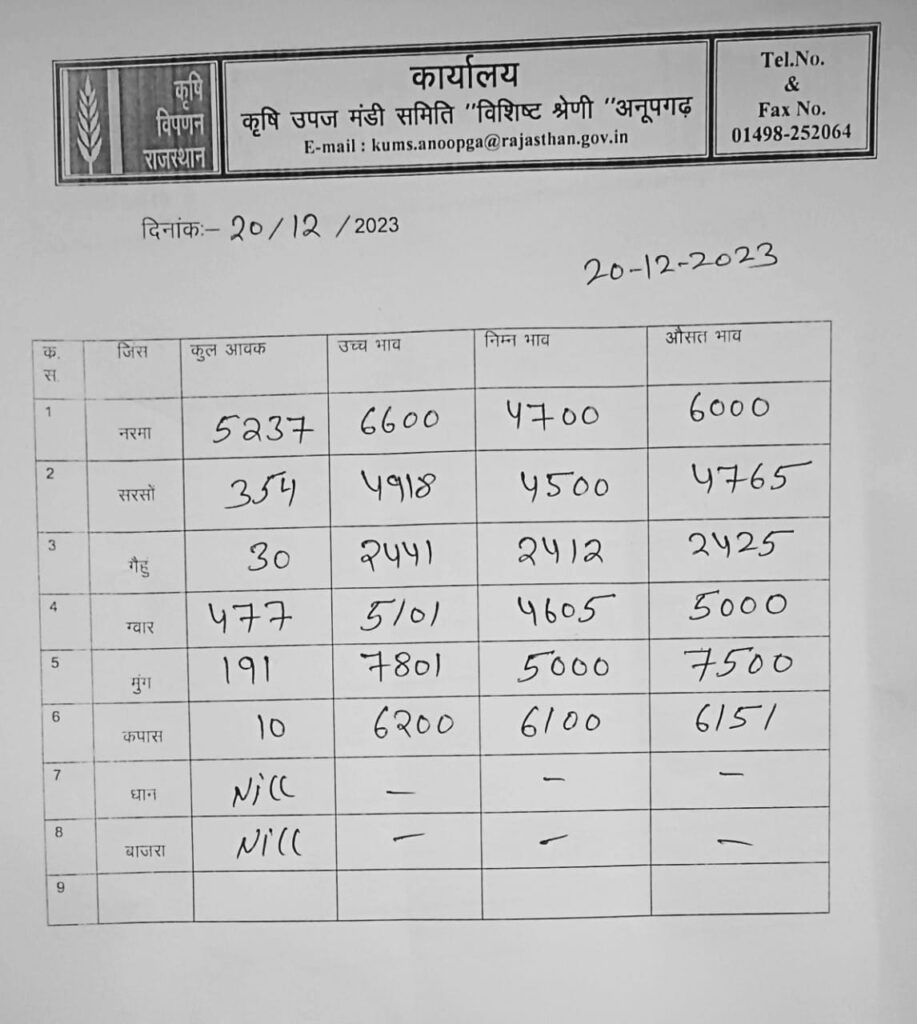 कृषि
विपणन
राजस्थान
कार्यालय
कृषि उपज मंडी समिति "विशिष्ट श्रेणी "अनूपगढ़
E-mail : kums.anoopga@rajasthan.gov.in
Tel.No.
&
Fax No.
01498-252064
दिनांकः– 20/12/2023
20-12-2023
क. स. जिंस कुल आवक उच्च भाव निम्न भाव औसत भाव
1 नरमा 5237 6600 4700 6000
2 सरसों 354 4918 4500 4765
3 गैहुं 30 2441 2412 2425
4 ग्वार 477 5101 4605 5000
5 मुंग 191 7801 5000 7500
6 कपास 10 6200 6100 6151
7 धान Nill – – –
8 बाजरा Nill – – –
9